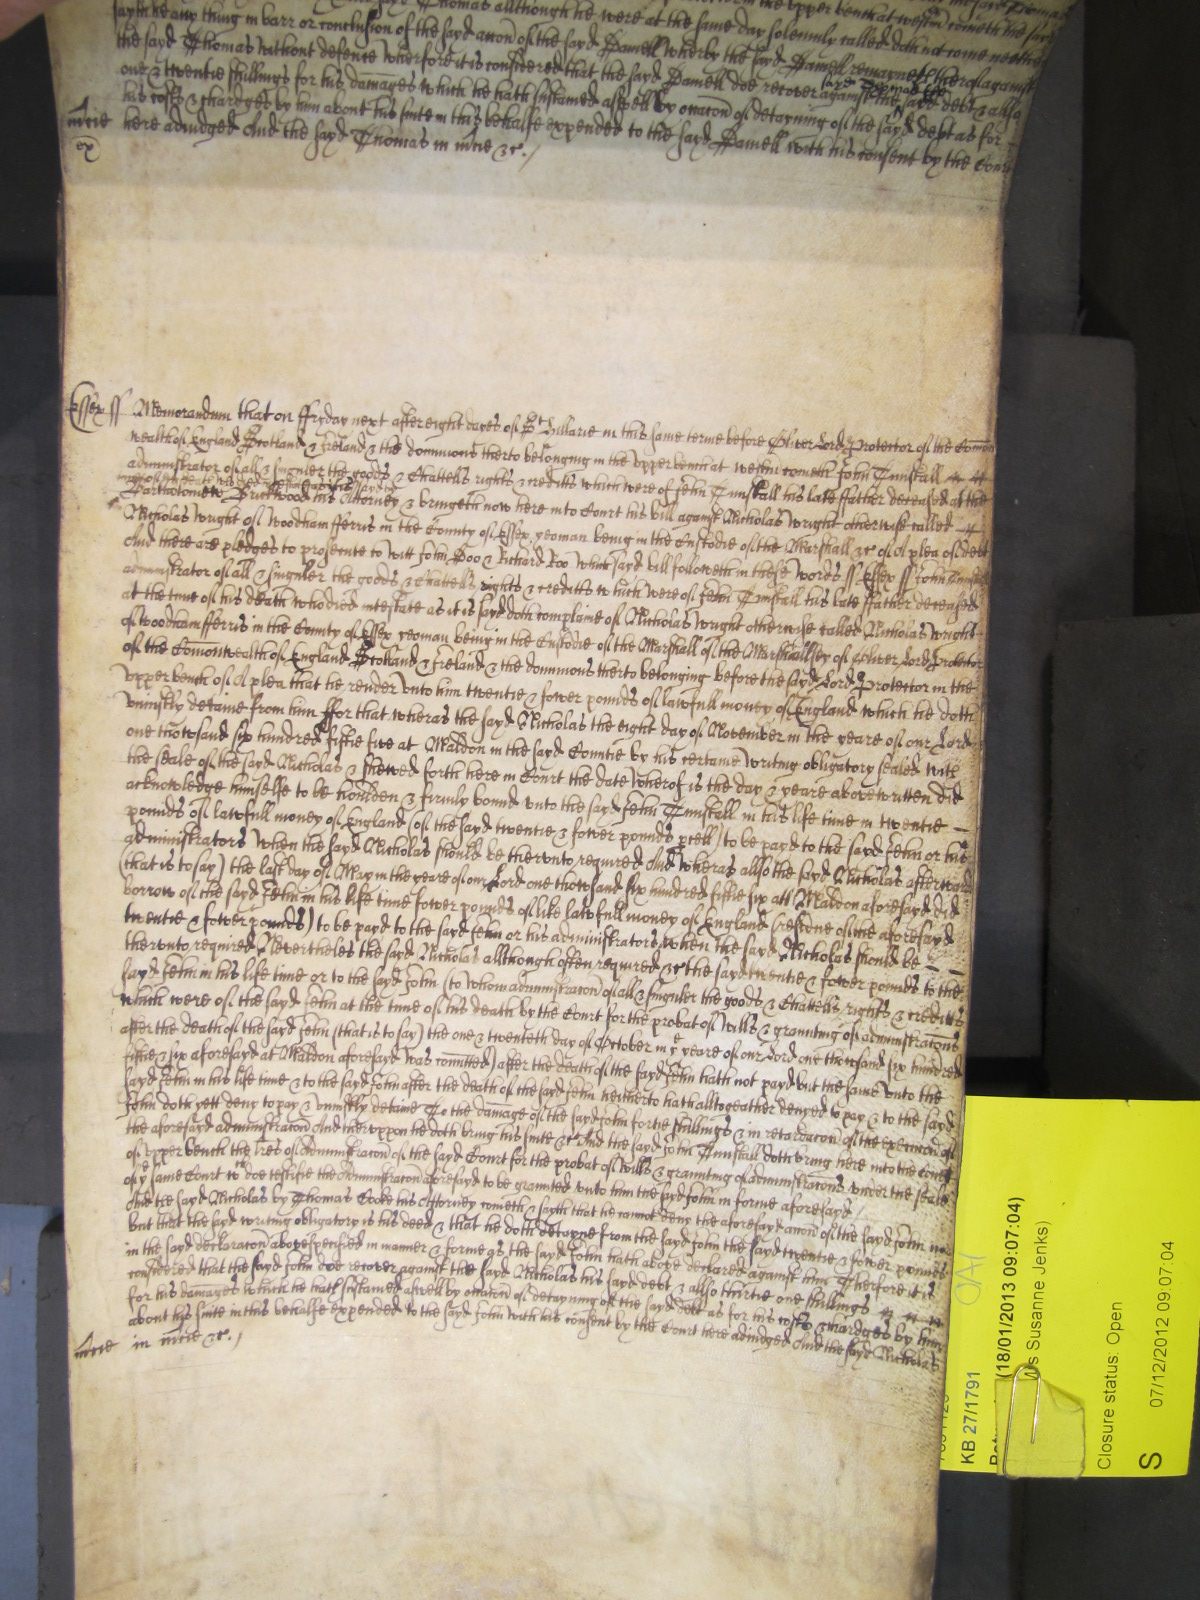 Thomas allthough he were at the same day solemnly called doth not come neither
sayth he any thing in barr or conclusion of the sayd accon of the sayd Daniell Wherby the sayd Daniell remayneth therof against
the sayd Thomas without defence Wherfore it is considered that the sayd Daniell doe recover against the sayd debt & allso
one & twentie shillings for his damages which he hath susteined aswell by occacon of detayning of the sayd debt as for
his costs & chardges by him about his suite in this behalfe expended to the sayd Daniell with his consent by the Court
mcie here adiudged And the sayd Thomas in mcie &c./
ex
Essex ss Memorandum that on ffryday next after eight dayes of St Hillarie in this same terme before Oliver Lord Protector of the Comon
wealth of England Scotland & Ireland & the dominions therto belonging in the upper bench at westm cometh John Tunstall
administrator of all & singuler the goods & Chattells rights & creditts which were of John Tunstall his late ffather deceased at the
Bartholomew Bucktwood his Attorney & bringeth now here into Court his bill against Nicholas Wright otherwise called
Nicholas Wright of Woodham fferris in the County of Essex yeoman being in the Custodie of the Marshall &c of a plea of debt
And there are pledges to prosecute to witt John Doo & Richard Roo Which sayd bill followeth in these words ss Essex ss John Tunstall
administrator of all & singuler the goods & Chattells rights & creditts which were of John Tunstall his late ffather deceased
at the time of his death who died intestate as it is sayd doth complaine of Nicholas Wright otherwise called Nicholas Wright
of Woodham fferris in the County of Essex yeoman being in the Custodie of the Marshall of the Marshallsey of Oliver Lord Protector
of the Comonwealth of England Scotland & Ireland & the dominions therto belonging before the sayd Lord Protector in the
upper bench of a plea that he render unto him twentie & fower pounds of lawfull money of England which he doth
uniustly detaine from him ffor that wheras the sayd Nicholas the eight day of November in the yeare of our Lord
one thowsand six hundred fiftie five at Maldon in the sayd Countie by his certaine writing obligatory sealed with
the seale of the sayd Nicholas & shewed forth here in Court the date wherof is the day & yeare above written did
acknowledge himselfe to be houlden & firmly bound unto the sayd John Tunstall in his life time in twentie
pounds of lawfull money of England (of the sayd twentie & fower pounds pcell) to be payd to the sayd John or his
administrators When the sayd Nicholas should be therunto required And wheras allso the sayd Nicholas afterward
(that is to say) the last day of May in the yeare of our Lord one thowsand six hundred fiftie six att Maldon aforesayd did
borrow of the sayd John in his life time fower pounds of like lawfull money of England (residue of the aforesayd
twentie & fower pounds) to be payd to the sayd John or his administrators when the sayd Nicholas should be
therunto required Nevertheles the sayd Nicholas allthough often required &c the sayd twentie & fower pounds to the
sayd John in his life time or to the sayd John (to whom administracon of all & singuler the goods & Chattells rights & creditts
which were of the sayd John at the time of his death by the Court for the probat of wills & graunting of administracons
after the death of the sayd John (that is to say) the one & twentieth day of October in ye yeare of our Lord one thowsand six hundred
fiftie & six aforesayd at Maldon aforesayd was comitted) after the death of the sayd John hath not payd but the same unto the
sayd John in his life time & to the sayd John after the death of the sayd John heitherto hath alltogeather denyed to pay & to the sayd
John doth yett deny to pay & uniustly detaine To the damage of the sayd John fortie shillings & in retardacon of the execucon of
the aforesayd administracon And therupon he doth bring his suite &c And the sayd John Tunstall doth bring here into the Court
of upper bench the lres of Administracon of the sayd Court for the probat of wills & graunting of administracons under the seale
of ye same Court wch doe testifie the administracon aforesayd to be graunted unto him the sayd John in forme aforesayd /
And the sayd Nicholas by Thomas Cooke his Attorney cometh & sayth that he cannot deny the aforesayd accon of the sayd John nor
but that the sayd writing obligatory is his deed & that he doth detayne from the sayd John the sayd twentie & fower pounds
in the sayd declaracon above specified in manner & forme as the sayd John hath above declared against him Therfore it is
considered that the sayd John doe recover against the sayd Nicholas his sayd debt & allso thirtie one shillings
for his damages which he hath susteined aswell by occacon of detayning of the sayd debt as for his costs & chardges by him
about his suite in this behalfe expended to the sayd John with his consent by the Court here adiudged And the sayd Nicholas
mcie in mcie &c./
KB 27/1791
(18/01/2013 09:07:04)
s Susanne Jenks)
Closure status: Open
S 07/12/2012 09:07:04